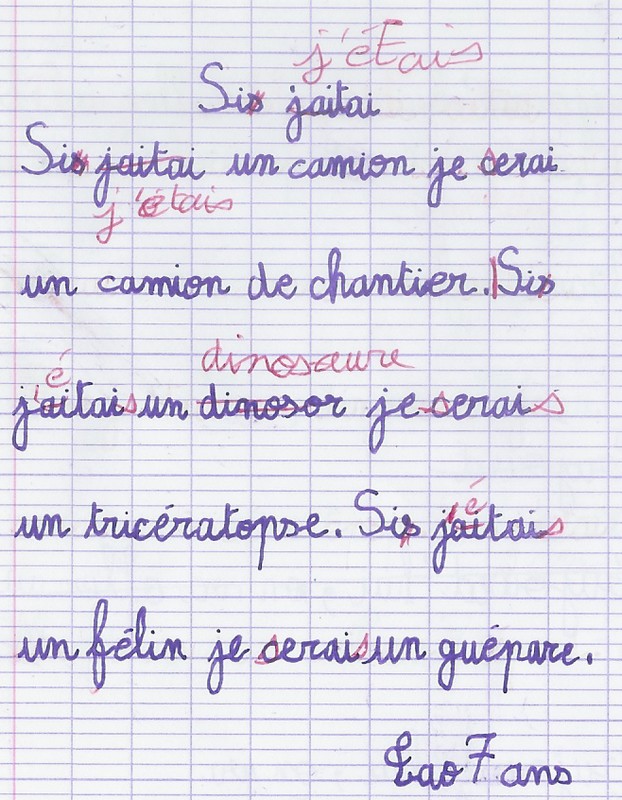 j'étais
Six jaitai
Six jaitai un camion je serai
j'étais
un camion de chantier. Six
é dinosaure
j'aitais un dinosor je serais
é
un tricératopse. Six j'aitais
un félin je serais un guépare.
Lao 7 ans